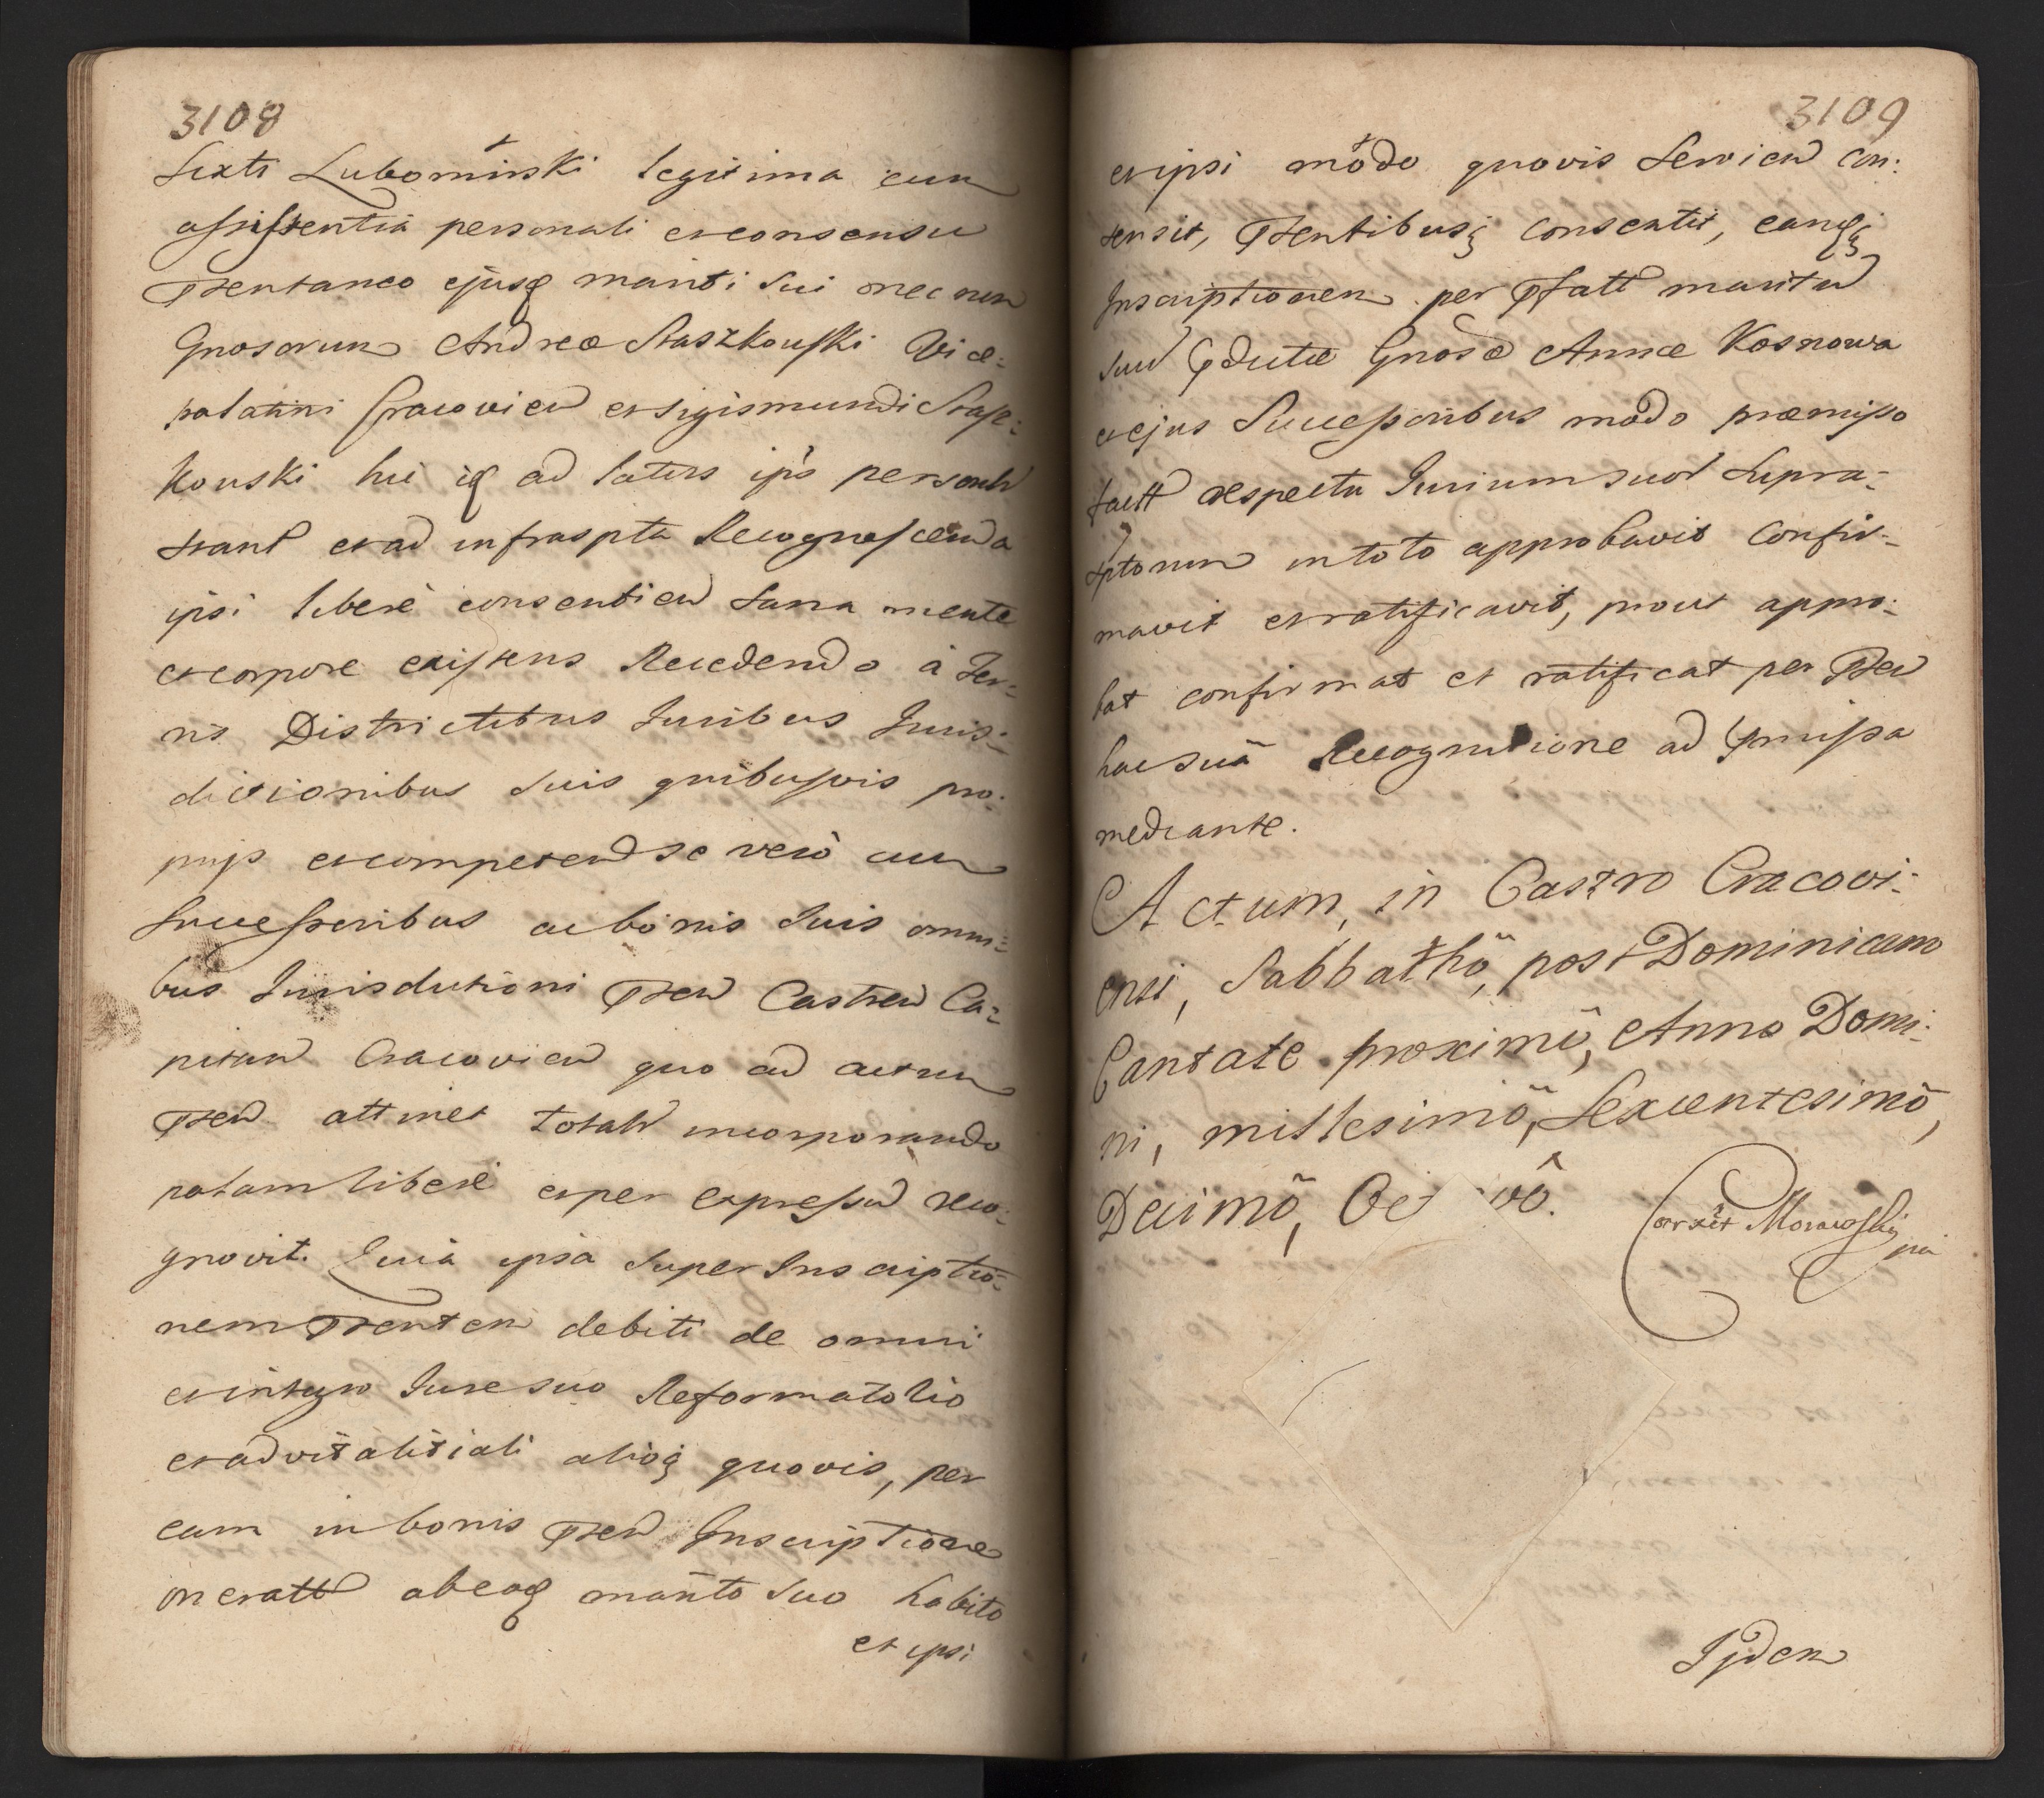 3108
Sexti Lubomirski legitima cum
assistentia personali et consensu
pntaneo ejusq mariti sui necnon
Gnosorum Andreæ Staszkowski Vice-
palatini Cracovien et Sigismundi Stasz-
kowski hic iq ad latus ips personlr
stant et ad infrasptta Recognoscenda
ipsi liberè consentien sana mente
et corpore existens Recedendo à Ter-
ris Districtibus Juribus Juris-
dictionibus suis quibusvis pro-
prijs et competend se verò cum
Successoribus ac bonis suis omni-
bus Jurisdictioni pnten Castren Ca-
pitan Cracovien quo ad actum
pnten attinet totalr incorporando
palam liberè et per expressum reco-
gnovit. Quia ipsa super Inscriptio-
nem pntentem debiti de omni
et integro Jure suo Reformatorio
et advitalitiali alioq quovis, per
eum in bonis pnten Inscriptione
oneratt ab eoq marito suo habito
et ipsi
3109
et ipsi modo quovis Servien con-
sensit, pntentibusq consentit, eamqq
Inscriptionem per pfatt maritum
suum pdictæ Gnosæ Annæ Kosnowa
et ejus Successoribus modo præmisso
factt respectu Jurium suor supra-
sptorum in toto approbavit confir-
mavit et ratificavit, prout appro-
bat confirmat et ratificat per pnten
hac suâ Recognitione ad pmissa
mediante.
Actum, in Castro Cracovi-
ensi, Sabbathô, post Dominicam
Cantate proximô, Anno Domi-
ni, millesimô, Sexcentesimô,
Decimô, Oct vô.
Corxit Morawsky
pa
Ijdem